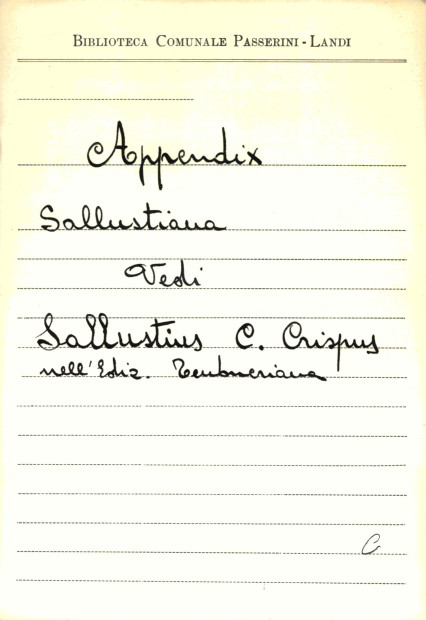 BIBLIOTECA COMUNALE PASSERINI - LANDI
Appendix
Sallustiana
Vedi
Sallustius C. Crispus
nell'Ediz. Teubneriana
C